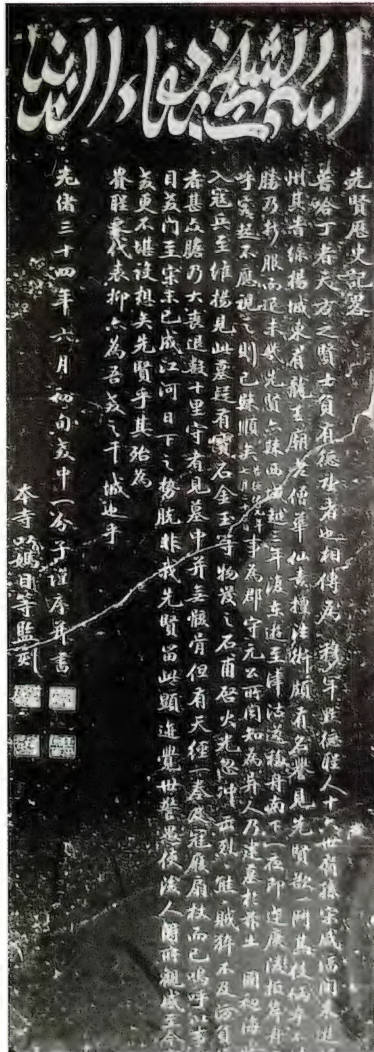 先賢歷史記畧
普哈丁者天方之賢士負有德望者也相傳為穆罕默德聖人十六世裔孫宋咸淳間來遊
州其者綠揚城東有龍王廟老僧華仙素擅法術頗有名譽見先賢欲一鬥其技倆卒不
勝乃折服而退未幾先賢亦歸西域越三年復東遊至津沽道極舟南下一夜即達廣陵抵岸舟
呼客起不應視之則已歸順矣 事為郡守元公所聞知為異人乃建墓於茲土 國初海
入寇兵至維揚見此墓疑有寶石金玉等物發之石甫啓火光忽冲而烈熊賊猝不及防負
者甚众膽乃大喪退數十里守者見墓中并無骸骨但有天經一卷及冠履扇杖而已嗚呼以事
目吾門至宋末已成江河日下之勢脱非我先賢留此顯迹覺世警愚使後人有所觀感至今
敎更不堪設想矣先賢乎其殆為
聖衆代表抑亦為吾敎之干城也乎
光緒三十四年六月初旬敎中一分子謹序并書
本寺哈媽目等監刻